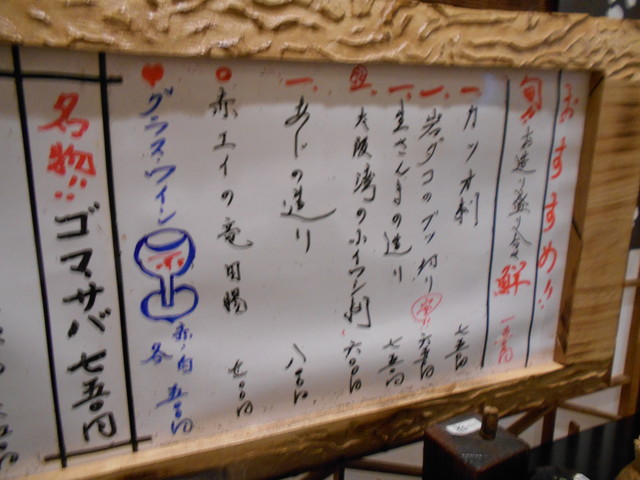 おすすめ!!
旬 お造り盛り合せ 鮮
一、カツオ刺 七五〇円
一、岩ダコのブツ切り 六五〇円
一、生さんまの造り 七五〇円
大阪湾の小イワシ刺 六〇〇円
一、あじの造り 八〇〇円
赤エイの竜田揚
グラスワイン 赤 赤/白 各 五〇〇円
名物!! ゴマサバ 七五〇円